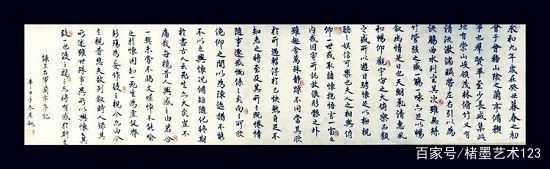 永和九年歲在癸丑暮春之初
會于會稽山陰之蘭亭脩禊
事也群賢畢至少長咸集此
地有崇山峻領茂林脩竹又有
清流激湍暎帶左右引以為
流觴曲水列坐其次雖無絲
竹管弦之盛一觴一詠亦足以暢
敘幽情是日也天朗氣清惠風
和暢仰觀宇宙之大俯察品類
之盛所以遊目騁懷足以極視
聽之娛信可樂也夫人之相與俯
仰一世或取諸懷抱悟言一室之
內或因寄所託放浪形骸之外
雖趣舍萬殊靜躁不同當其欣
於所遇暫得於己快然自足不
知老之將至及其所之既倦情
隨事遷感慨係之矣向之所欣
俛仰之間以為陳迹猶不能
不以之興懷況脩短隨化終期
於盡古人云死生亦大矣豈不
痛哉每攬昔人興感之由若合
一契未嘗不臨文嗟悼不能喻
之於懷固知一死生為虛誕齊
彭殤為妄作後之視今亦由今
之視昔悲夫故列敘時人錄其
所述雖世殊事異所以興懷其
致一也後之攬者亦將有感於斯文
王右軍蘭亭序記
百家号/楮墨艺术123